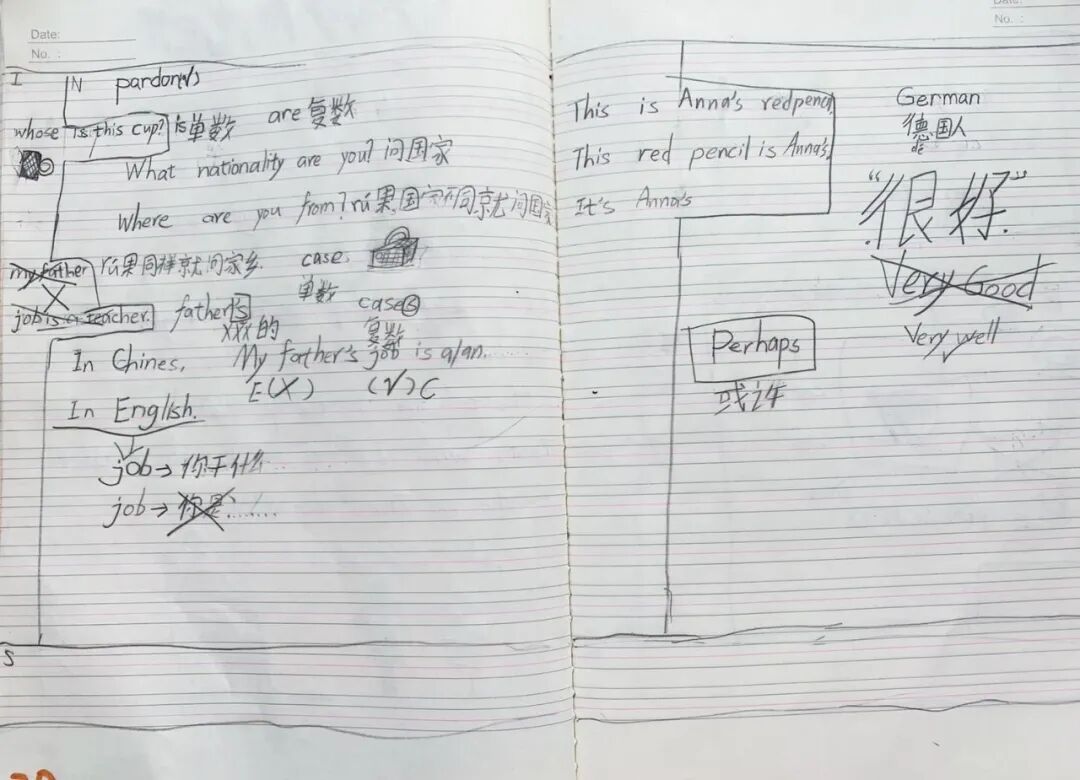 Date:
No. :
I N pardon(v)
whose is this cup? is单数 are复数
What nationality are you? 问国家
Where are you from? 如果国家不同就问国家
my father 如果同样就问家乡. case.
单数
job is a teacher. father's cases
XXX的 复数
In Chines, My father's job is a/an......
E(X) (√)C
In English.
job→你干什么......
job→你是......
S
Date:
No. :
This is Anna's redpencil
This red pencil is Anna's.
It's Anna's
German
德国人
de
"很好"
Very Good
Very well
Perhaps
或许